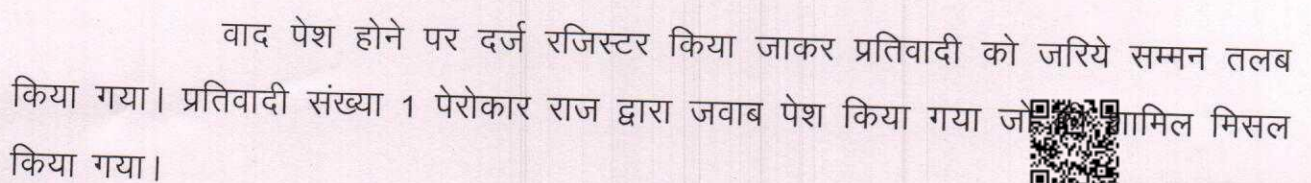 वाद पेश होने पर दर्ज रजिस्टर किया जाकर प्रतिवादी को जरिये सम्मन तलब
किया गया। प्रतिवादी संख्या 1 पेरोकार राज द्वारा जवाब पेश किया गया मिसल
किया गया।